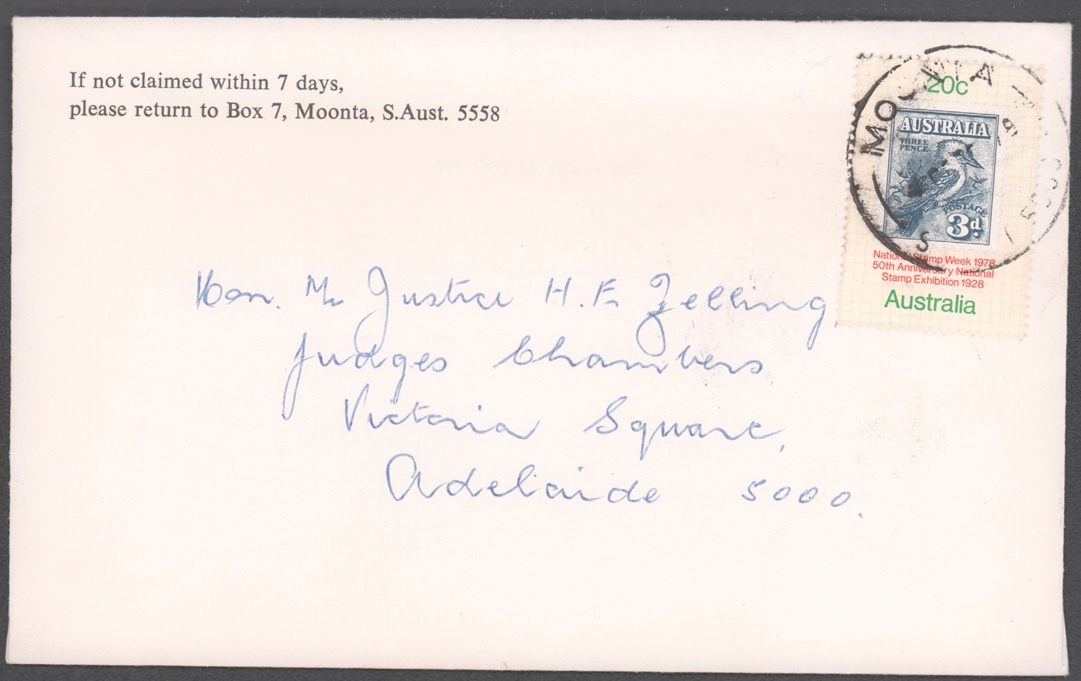 If not claimed within 7 days,
please return to Box 7, Moonta, S.Aust. 5558
MOONTA
20c
AUSTRALIA
THREE
PENCE
POSTAGE
3d.
National Stamp Week 1978
50th Anniversary National
Stamp Exhibition 1928
Australia
Hon. Mr Justice H. E. Zelling,
Judges Chambers
Victoria Square,
Adelaide 5000.